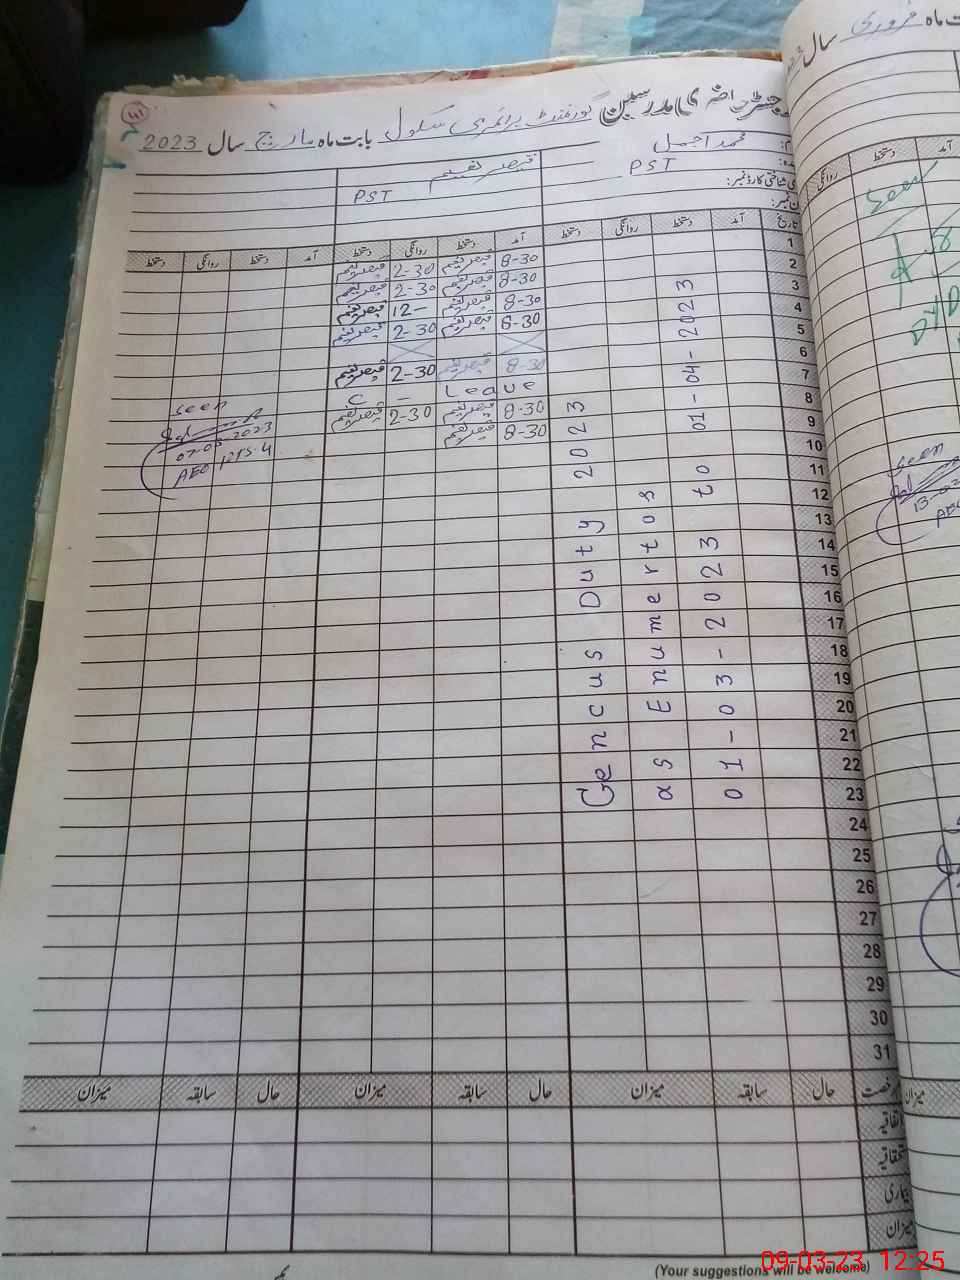 رجسٹر حاضری مدرسین گورنمنٹ پرائمری سکول بابت ماہ مارچ سال 2023
محمد اجمل
قیصر نعیم
PST
PST
شناختی کارڈ نمبر:
تاریخ آمد دستخط روانگی دستخط آمد دستخط روانگی دستخط آمد دستخط روانگی دستخط
1 8-30 قیصر نعیم 2-30 قیصر نعیم
2 8-30 قیصر نعیم 2-30 قیصر نعیم
3 8-30 قیصر نعیم 12- قیصر نعیم
4 8-30 قیصر نعیم 2-30 قیصر نعیم
5
6 8-30 قیصر نعیم 2-30 قیصر نعیم
7 C - Leave
8 8-30 قیصر نعیم 2-30 قیصر نعیم
9 8-30 قیصر نعیم
10
11
12
13
14
15
16
17
18
19
20
21
22
23
24
25
26
27
28
29
30
31
Cencus Duty 2023
as Enumertos
01-03-2023 to 01-04-2023
seen
07-03-2023
AEO
رخصت حال سابقہ میزان حال سابقہ میزان حال سابقہ میزان
اتفاقیہ
استحقاقیہ
بیماری
میزان
(Your suggestions will be welcome)
ت ماہ فروری سال
آمد دستخط روانگی
seen
seen
میزان
09-03-23 12:25